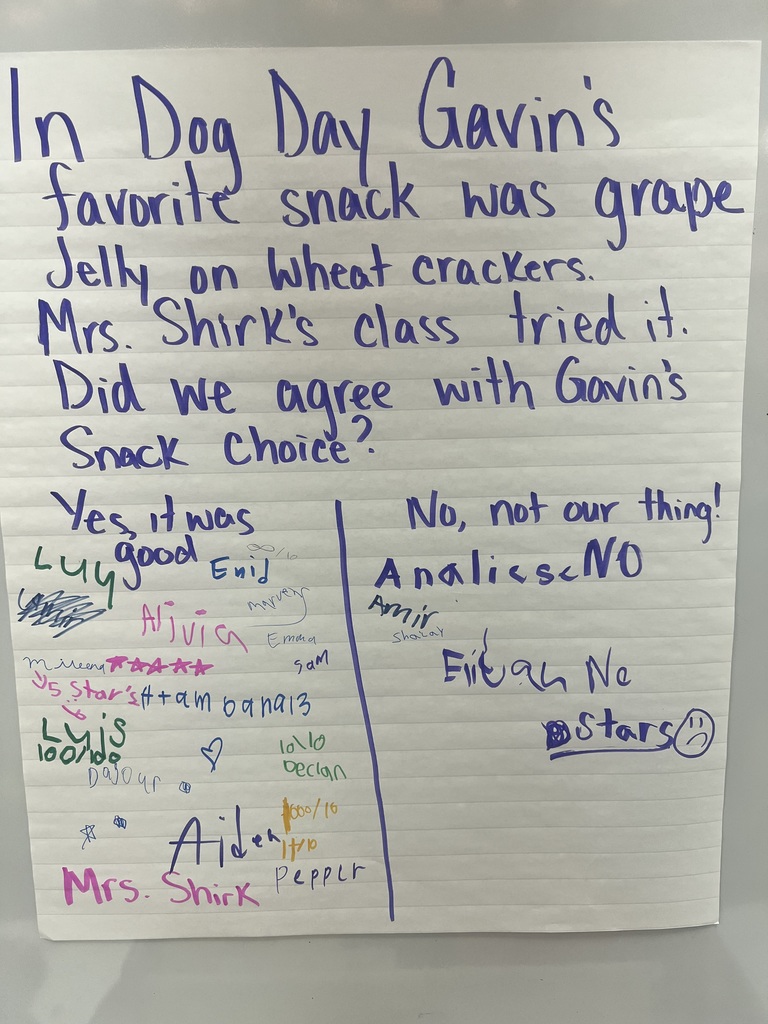 In Dog Day Gavin's
favorite snack was grape
Jelly on wheat crackers.
Mrs. Shirk's class tried it.
Did we agree with Gavin's
Snack choice?
Yes, it was
good
∞/10
Luy
Enid
Alivia
Emma
sam
5 Star's
Luis
100/100
10/10
Declan
1000/10
Aiden
Pepper
Mrs. Shirk
No, not our thing!
Analiese NO
Amir
No
Stars